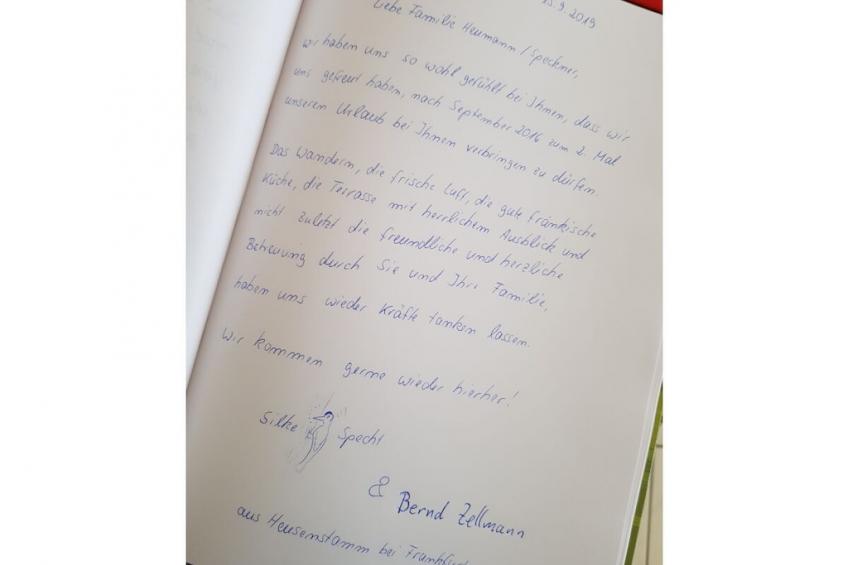 15.9.2019
Liebe Familie Heumann / Speckner,
wir haben uns so wohl gefühlt bei Ihnen, dass wir
uns gefreut haben, nach September 2016 zum 2. Mal
unseren Urlaub bei Ihnen verbringen zu dürfen.
Das Wandern, die frische Luft, die gute fränkische
Küche, die Terrasse mit herrlichem Ausblick und
nicht zuletzt die freundliche und herzliche
Betreuung durch Sie und Ihre Familie,
haben uns wieder Kräfte tanken lassen.
Wir kommen gerne wieder hierher!
Silke Specht
& Bernd Zellmann
aus Heusenstamm bei Frankfurt